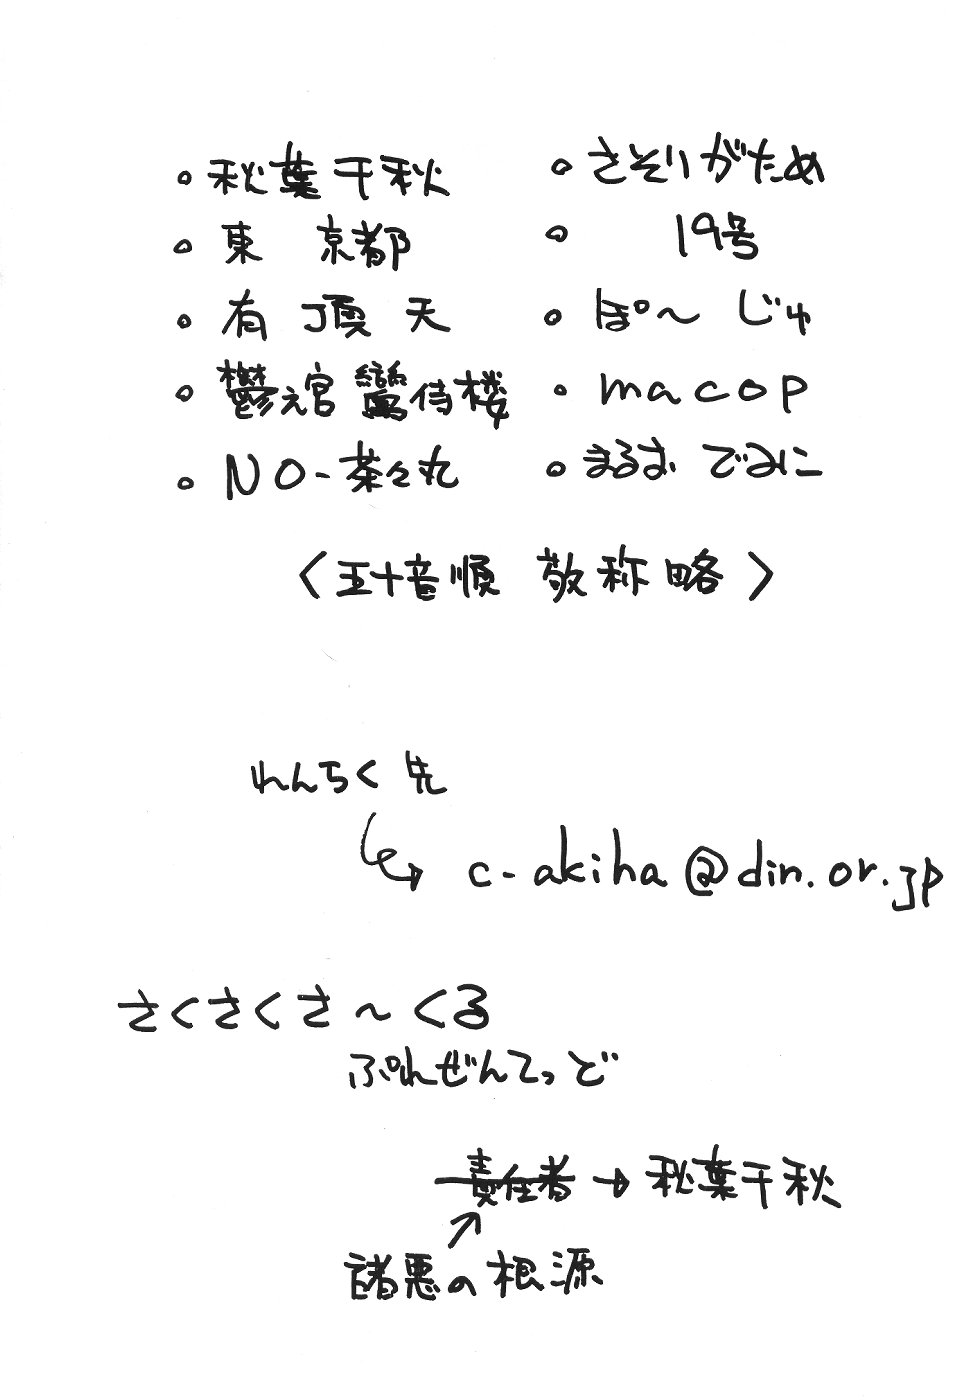 。秋葉千秋
。東 京都
。有 頂 天
。鬱え宮 鸞侍楼
。NO-茶々丸
。さそりがため
。19号
。ぽ〜 じゅ
。macop
。まるお でみに
〈五十音順 敬称略〉
れんちく先
↳ c-akiha@din.or.jp
さくさくさ〜くる
ぷれぜんてっど
責任者→秋葉千秋
↗
諸悪の根源